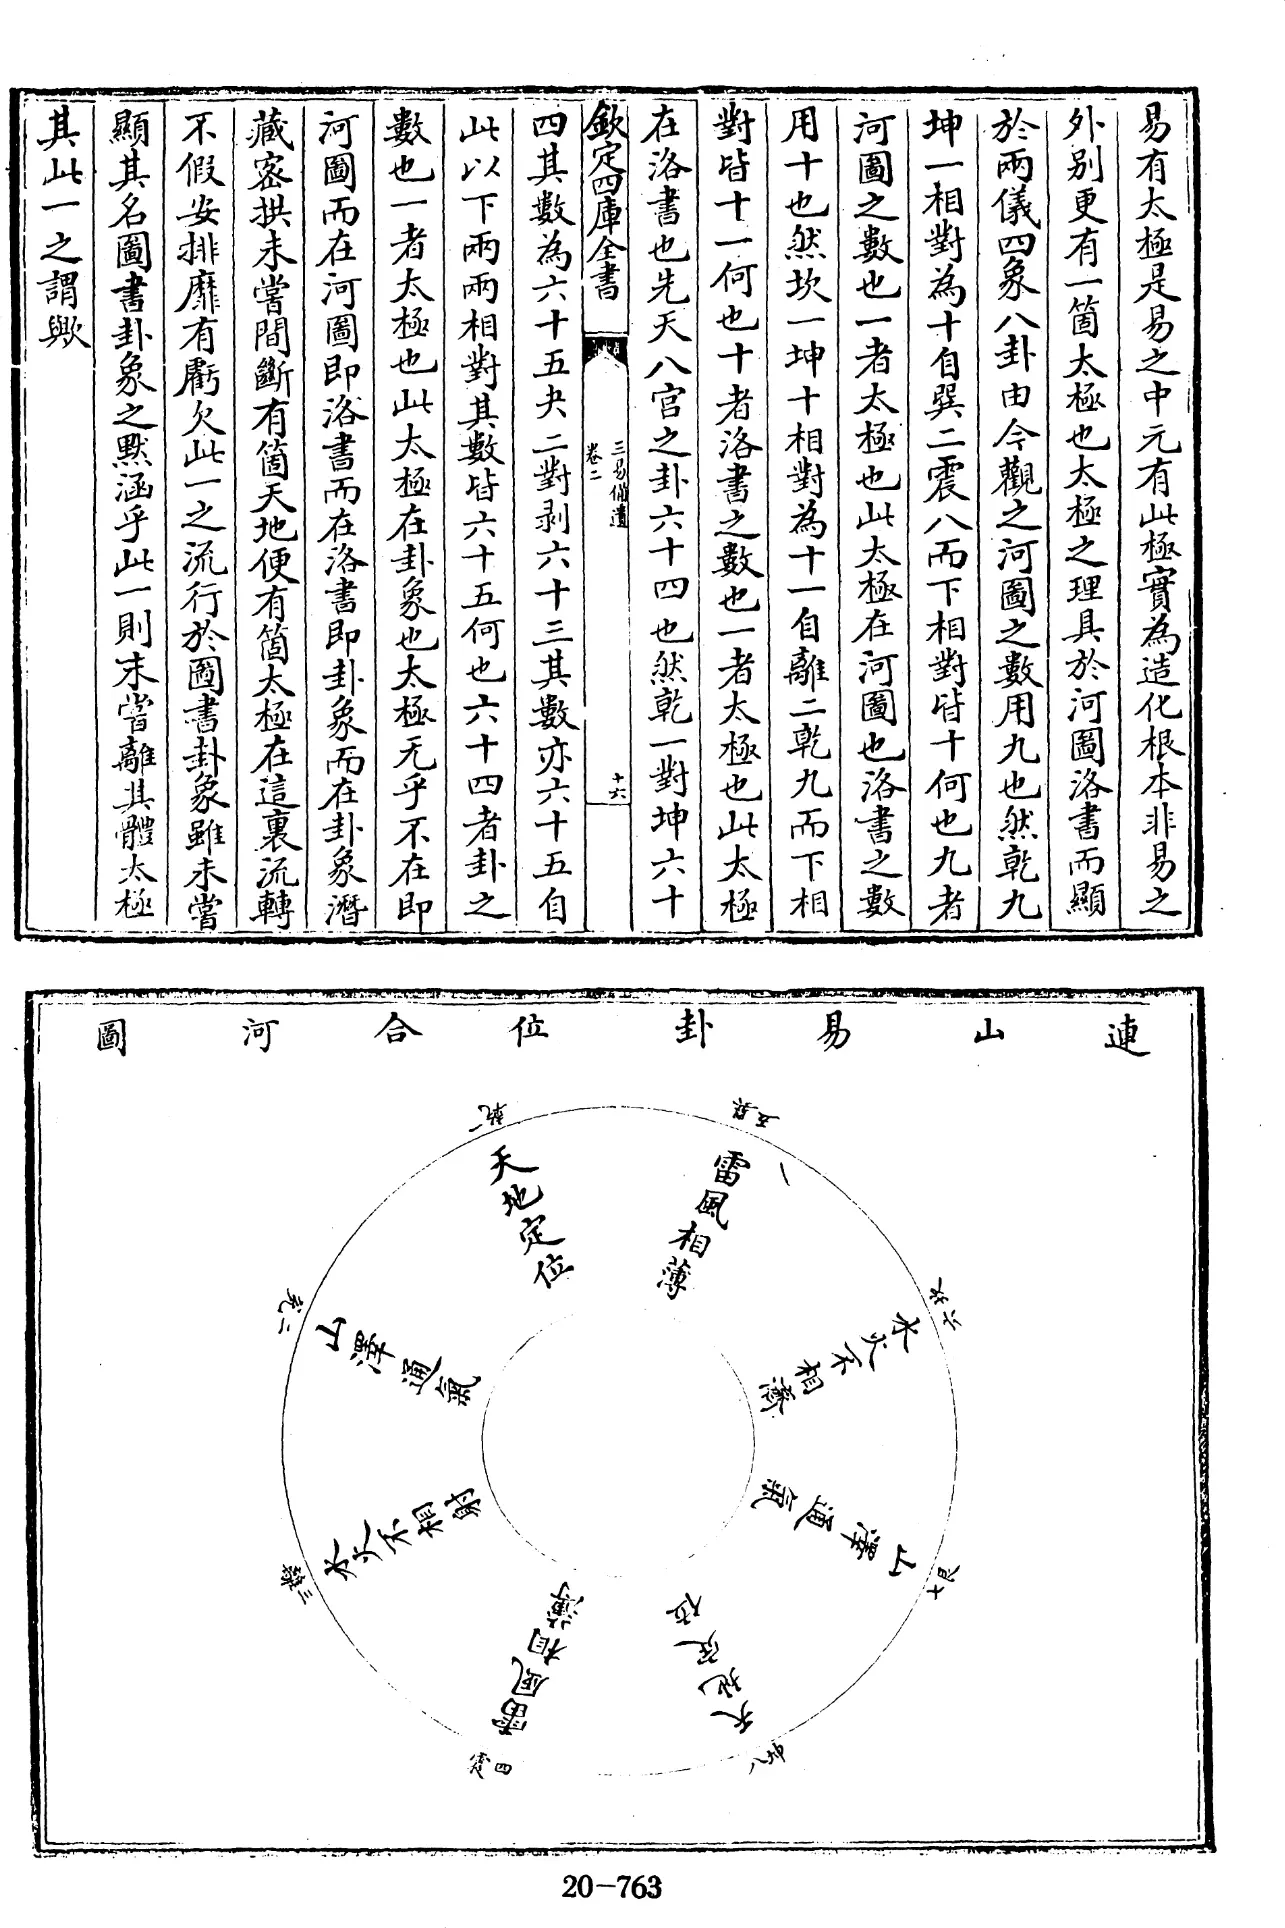 易有太極是易之中元有此極實為造化根本非易之
外別更有一箇太極也太極之理具於河圖洛書而顯
於兩儀四象八卦由今觀之河圖之數用九也然乾九
坤一相對為十自巽二震八而下相對皆十何也九者
河圖之數也一者太極也此太極在河圖也洛書之數
用十也然坎一坤十相對為十一自離二乾九而下相
對皆十一何也十者洛書之數也一者太極也此太極
在洛書也先天八宫之卦六十四也然乾一對坤六十
欽定四庫全書
三易備遺
卷二
十六
四其數為六十五夬二對剥六十三其數亦六十五自
此以下兩兩相對其數皆六十五何也六十四者卦之
數也一者太極也此太極在卦象也太極无乎不在即
河圖而在河圖即洛書而在洛書即卦象而在卦象濳
藏宻拱未嘗間斷有箇天地便有箇太極在這裏流轉
不假安排靡有虧欠此一之流行於圖書卦象雖未嘗
顯其名圖書卦象之黙涵乎此一則未嘗離其體太極
其此一之謂歟
連山易卦位合河圖
乾一
天地定位
巽五
雷風相薄
坎六
水火不相
艮七
山澤通氣
坤八
天地定位
震四
雷風相薄
離三
水火不相射
兌二
山澤通氣
20-763